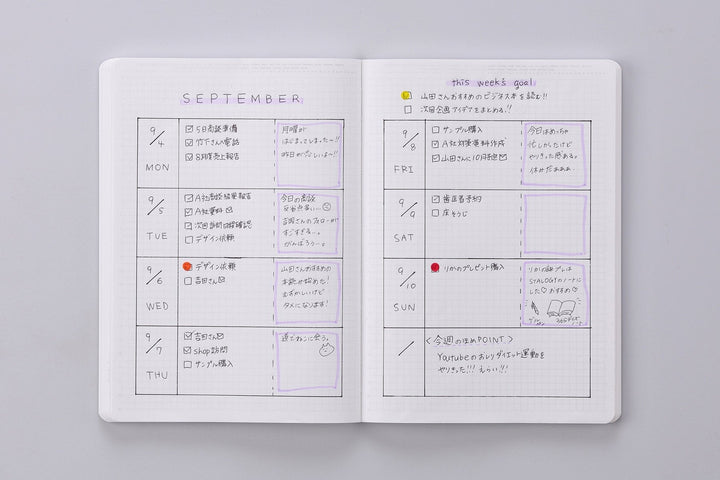 SEPTEMBER
9/4
MON
5日商談準備
竹下さんへ電話
8月度売上報告
月曜が
はじまってしまったー!!
昨日が恋しいよー!!
9/5
TUE
A社商談結果報告
A社資料
次回訪問日程確認
デザイン依頼
今日の商談
反省点多い…
吉岡さんのフォローが
すごすぎる…。
がんばろうー。
9/6
WED
デザイン依頼
吉田さん
山田さんおすすめの
本読み始めた!
むずかしいけど
タメになります!
9/7
THU
吉田さん
shop訪問
サンプル購入
道でねこに会う。
this week's goal
山田さんおすすめのビジネス本を読む!!
次回企画アイデアをまとめる!!
9/8
FRI
サンプル購入
A社対策資料作成
山田さんに10月担当
今日はめっちゃ
忙しかったけど
やりきった感ある。
休みだぁぁぁ
9/9
SAT
歯医者予約
床そうじ
9/10
SUN
りかのプレゼント購入
りかの誕プレは
STALOGYのノートに
した♡おすすめ♡
/
〈今週のほめPOINT〉
Youtubeのおしりダイエット運動を
やりきった!!! えらい!!!